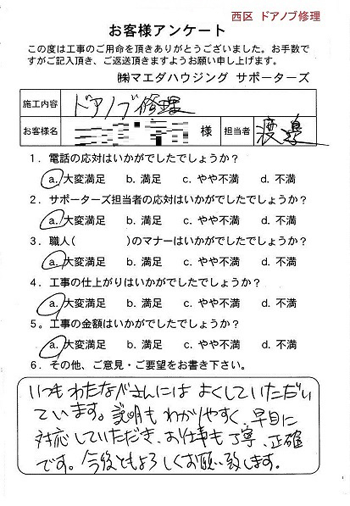 西区 ドアノブ修理
お客様アンケート
この度は工事のご用命を頂きありがとうございました。お手数で
すがご記入頂き、ご返送頂きますようお願い申し上げます。
㈱マエダハウジング サポーターズ
施工内容 ドアノブ修理
お客様名 様 担当者 渡邉
1．電話の応対はいかがでしたでしょうか？
a. 大変満足 b. 満足 c. やや不満 d. 不満
2．サポーターズ担当者の応対はいかがでしたでしょうか？
a. 大変満足 b. 満足 c. やや不満 d. 不満
3．職人( )のマナーはいかがでしたでしょうか？
a. 大変満足 b. 満足 c. やや不満 d. 不満
4．工事の仕上がりはいかがでしたでしょうか？
a. 大変満足 b. 満足 c. やや不満 d. 不満
5．工事の金額はいかがでしたでしょうか？
a. 大変満足 b. 満足 c. やや不満 d. 不満
6．その他、ご意見・ご要望をお書き下さい。
いつもわたなべさんには よくしていただい
ています。説明もわかりやすく、早目に
対応していただき、お仕事も丁寧、正確
です。今後ともよろしくお願い致します。